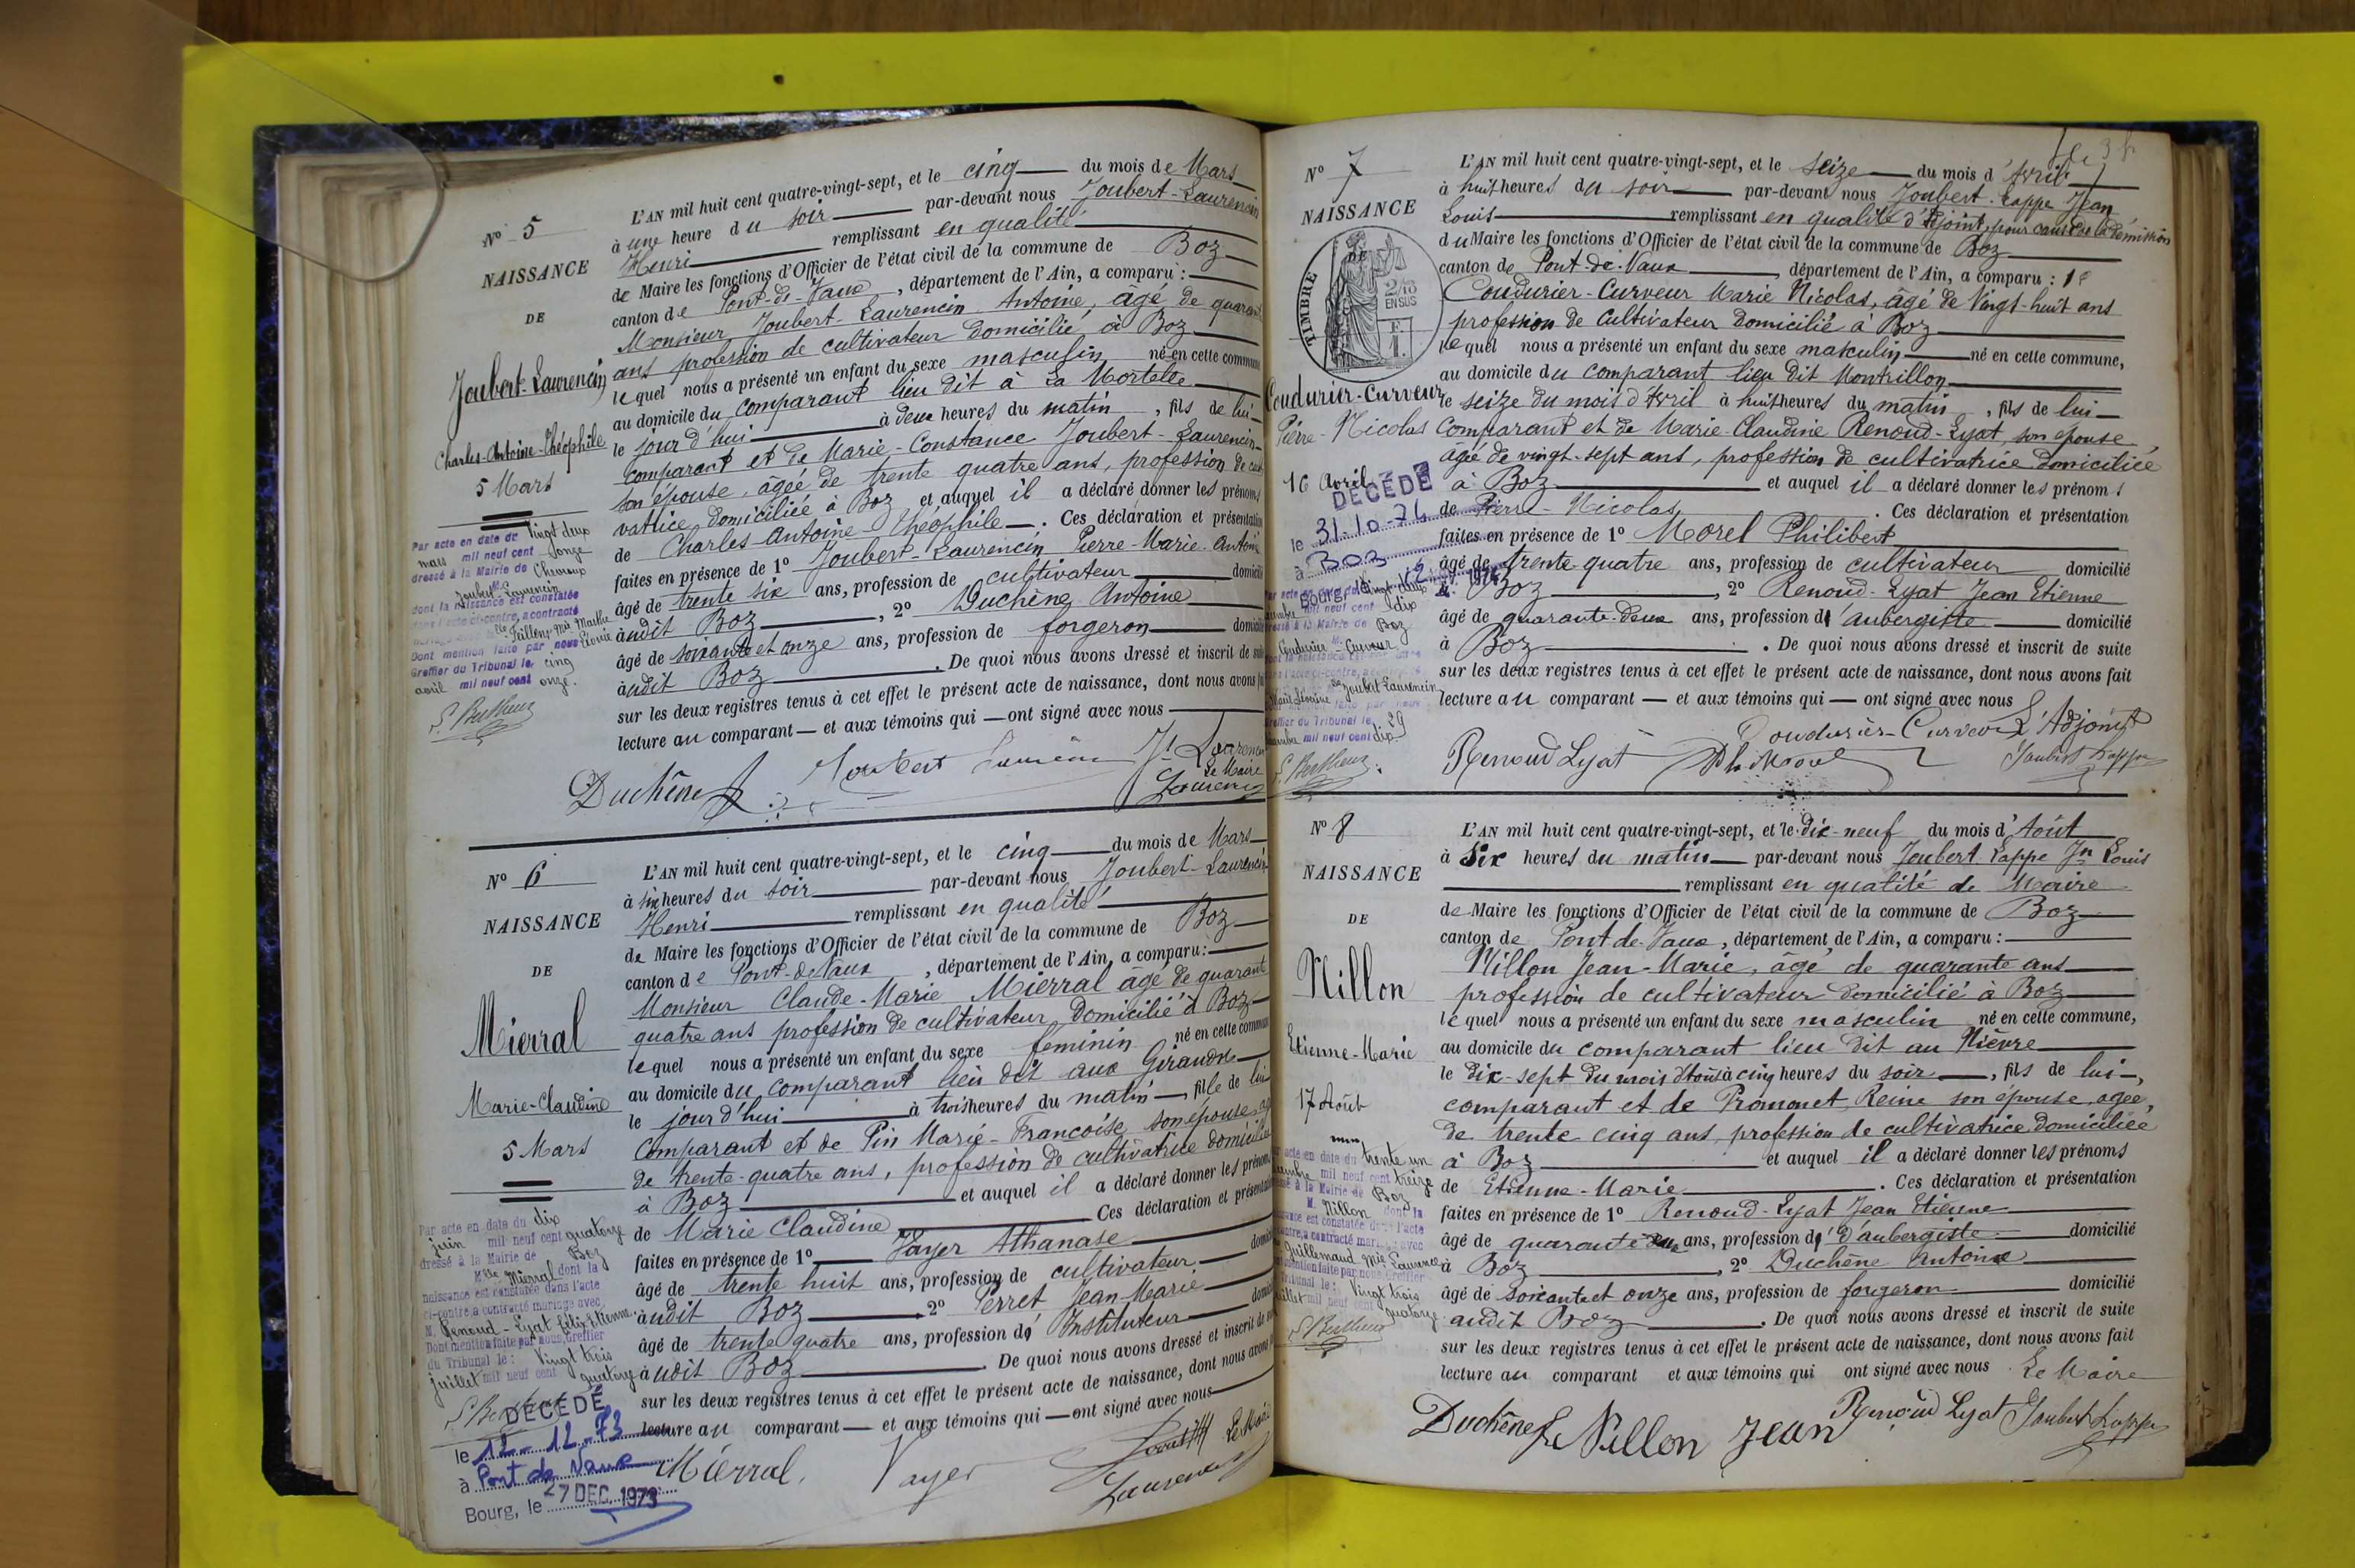 N° 5
NAISSANCE
DE
Joubert-Laurencin
Charles-Antoine-Théophile
5 Mars
Par acte en date de vingt deux
mars mil neuf cent onze
dressé à la Mairie de Chevroux
M. Joubert-Laurencin
dont la naissance est constatée
dans l'acte ci-contre, a contracté
Dont mention faite par nous
Greffier du Tribunal le cinq
avril mil neuf cent onze.
L'AN mil huit cent quatre-vingt-sept, et le cinq du mois de Mars
à une heure du soir par-devant nous Joubert-Laurencin
Henri remplissant en qualité
de Maire les fonctions d'Officier de l'état civil de la commune de Boz
canton de Pont-de-Vaux, département de l'Ain, a comparu :
Monsieur Joubert-Laurencin Antoine, âgé de quarante
ans profession de cultivateur domicilié à Boz
lequel nous a présenté un enfant du sexe masculin né en cette commune
au domicile du comparant lieu dit à La Mortelle
le jour d'hui à deux heures du matin, fils de lui
comparant et de Marie-Constance Joubert-Laurencin
son épouse, âgée de trente quatre ans, profession de culti
vatrice domiciliée à Boz et auquel il a déclaré donner les prénoms
de Charles-Antoine-Théophile. Ces déclaration et présentation
faites en présence de 1° Joubert-Laurencin Pierre-Marie-Antoine
âgé de trente six ans, profession de cultivateur domicilié
àudit Boz, 2° Duchêne Antoine
âgé de soixante et onze ans, profession de forgeron domicilié
àudit Boz. De quoi nous avons dressé et inscrit de suite
sur les deux registres tenus à cet effet le présent acte de naissance, dont nous avons fait
lecture au comparant et aux témoins qui ont signé avec nous
Duchêne Joubert Laurencin Jt Laurencin
Le Maire
Laurencin
N° 6
NAISSANCE
DE
Mierral
Marie-Claudine
5 Mars
Par acte en date du dix
juin mil neuf cent quatorze
dressé à la Mairie de Boz
Mlle Mierral dont la
naissance est constatée dans l'acte
ci-contre, a contracté mariage avec
M. Renoud-Lyat Félix Etienne.
Dont mention faite par nous, Greffier
du Tribunal le : Vingt trois
juillet mil neuf cent quatorze
DÉCÉDÉ
le 12-12-73
à Pont de Vaux
Bourg, le 27 DEC. 1973
L'AN mil huit cent quatre-vingt-sept, et le cinq du mois de Mars
à six heures du soir par-devant nous Joubert-Laurencin
Henri remplissant en qualité
de Maire les fonctions d'Officier de l'état civil de la commune de Boz
canton de Pont-de-Vaux, département de l'Ain, a comparu :
Monsieur Claude-Marie Mierral âgé de quarante
quatre ans profession de cultivateur domicilié à Boz
lequel nous a présenté un enfant du sexe feminin né en cette commune
au domicile du comparant lieu dit aux Giraudes
le jour d'hui à trois heures du matin, fille de lui
comparant et de Pin Marie-Françoise son épouse âgée
de trente-quatre ans, profession de cultivatrice domiciliée
à Boz et auquel il a déclaré donner les prénoms
de Marie Claudine Ces déclaration et présentation
faites en présence de 1° Vayer Athanase
âgé de trente huit ans, profession de cultivateur domicilié
àudit Boz 2° Perret Jean-Marie
âgé de trente quatre ans, profession d'Instituteur domicilié
àudit Boz. De quoi nous avons dressé et inscrit de suite
sur les deux registres tenus à cet effet le présent acte de naissance, dont nous avons
lecture au comparant et aux témoins qui ont signé avec nous
Le Maire
Mierral, Vayer Laurencin
N° 7
NAISSANCE
TIMBRE
2/10 EN SUS
Coudurier-Curveur
Pierre-Nicolas
16 Avril
DÉCÉDÉ
le 31-10-74
à Boz
L'AN mil huit cent quatre-vingt-sept, et le seize du mois d'Avril
à huit heures du soir par-devant nous Joubert-Lappe Jean
Louis remplissant en qualité d'Adjoint, pour cause de la démission
du Maire les fonctions d'Officier de l'état civil de la commune de Boz
canton de Pont-de-Vaux, département de l'Ain, a comparu : 1°
Coudurier-Curveur Marie Nicolas, âgé de Vingt-huit ans
profession de cultivateur domicilié à Boz
lequel nous a présenté un enfant du sexe masculin né en cette commune,
au domicile du comparant lieu dit Montrillon
le seize du mois d'Avril à huit heures du matin, fils de lui
comparant et de Marie-Claudine Renoud-Lyat, son épouse,
âgée de vingt-sept ans, profession de cultivatrice domiciliée
à Boz et auquel il a déclaré donner les prénoms
de Pierre-Nicolas. Ces déclaration et présentation
faites en présence de 1° Morel Philibert
âgé de trente-quatre ans, profession de cultivateur domicilié
à Boz, 2° Renoud-Lyat Jean Etienne
âgé de quarante-deux ans, profession d'aubergiste domicilié
à Boz. De quoi nous avons dressé et inscrit de suite
sur les deux registres tenus à cet effet le présent acte de naissance, dont nous avons fait
lecture au comparant et aux témoins qui ont signé avec nous
Coudurier-Curveur L'Adjoint
Renoud Lyat Ph. Morel Joubert Lappe
N° 8
NAISSANCE
DE
Nillon
Etienne-Marie
17 Août
acte en date du trente un
mil neuf cent treize
à la Mairie de Boz
M. Nillon dont la
naissance est constatée dans l'acte
ci-contre, a contracté mariage avec
Guillemaud Mie Laurence
mention faite par nous Greffier
Tribunal le : Vingt trois
juillet mil neuf cent quatorze
L'AN mil huit cent quatre-vingt-sept, et le dix-neuf du mois d'Août
à Six heures du matin par-devant nous Joubert Lappe Jn Louis
remplissant en qualité de Maire
de Maire les fonctions d'Officier de l'état civil de la commune de Boz
canton de Pont de-Vaux, département de l'Ain, a comparu :
Nillon Jean-Marie, âgé de quarante ans
profession de cultivateur domicilié à Boz
lequel nous a présenté un enfant du sexe masculin né en cette commune,
au domicile du comparant lieu dit au Nièvre
le dix-sept du mois d'Août à cinq heures du soir, fils de lui,
comparant et de Promonet Reine son épouse, agée,
de trente cinq ans, profession de cultivatrice domiciliée
à Boz et auquel il a déclaré donner les prénoms
de Etienne-Marie. Ces déclaration et présentation
faites en présence de 1° Renoud-Lyat Jean Etienne
âgé de quarante deux ans, profession d'd'aubergiste domicilié
à Boz, 2° Duchêne Antoine
âgé de soixante et onze ans, profession de forgeron domicilié
audit Boz. De quoi nous avons dressé et inscrit de suite
sur les deux registres tenus à cet effet le présent acte de naissance, dont nous avons fait
lecture au comparant et aux témoins qui ont signé avec nous Le Maire
Duchêne Nillon Jean Renoud Lyat Joubert Lappe